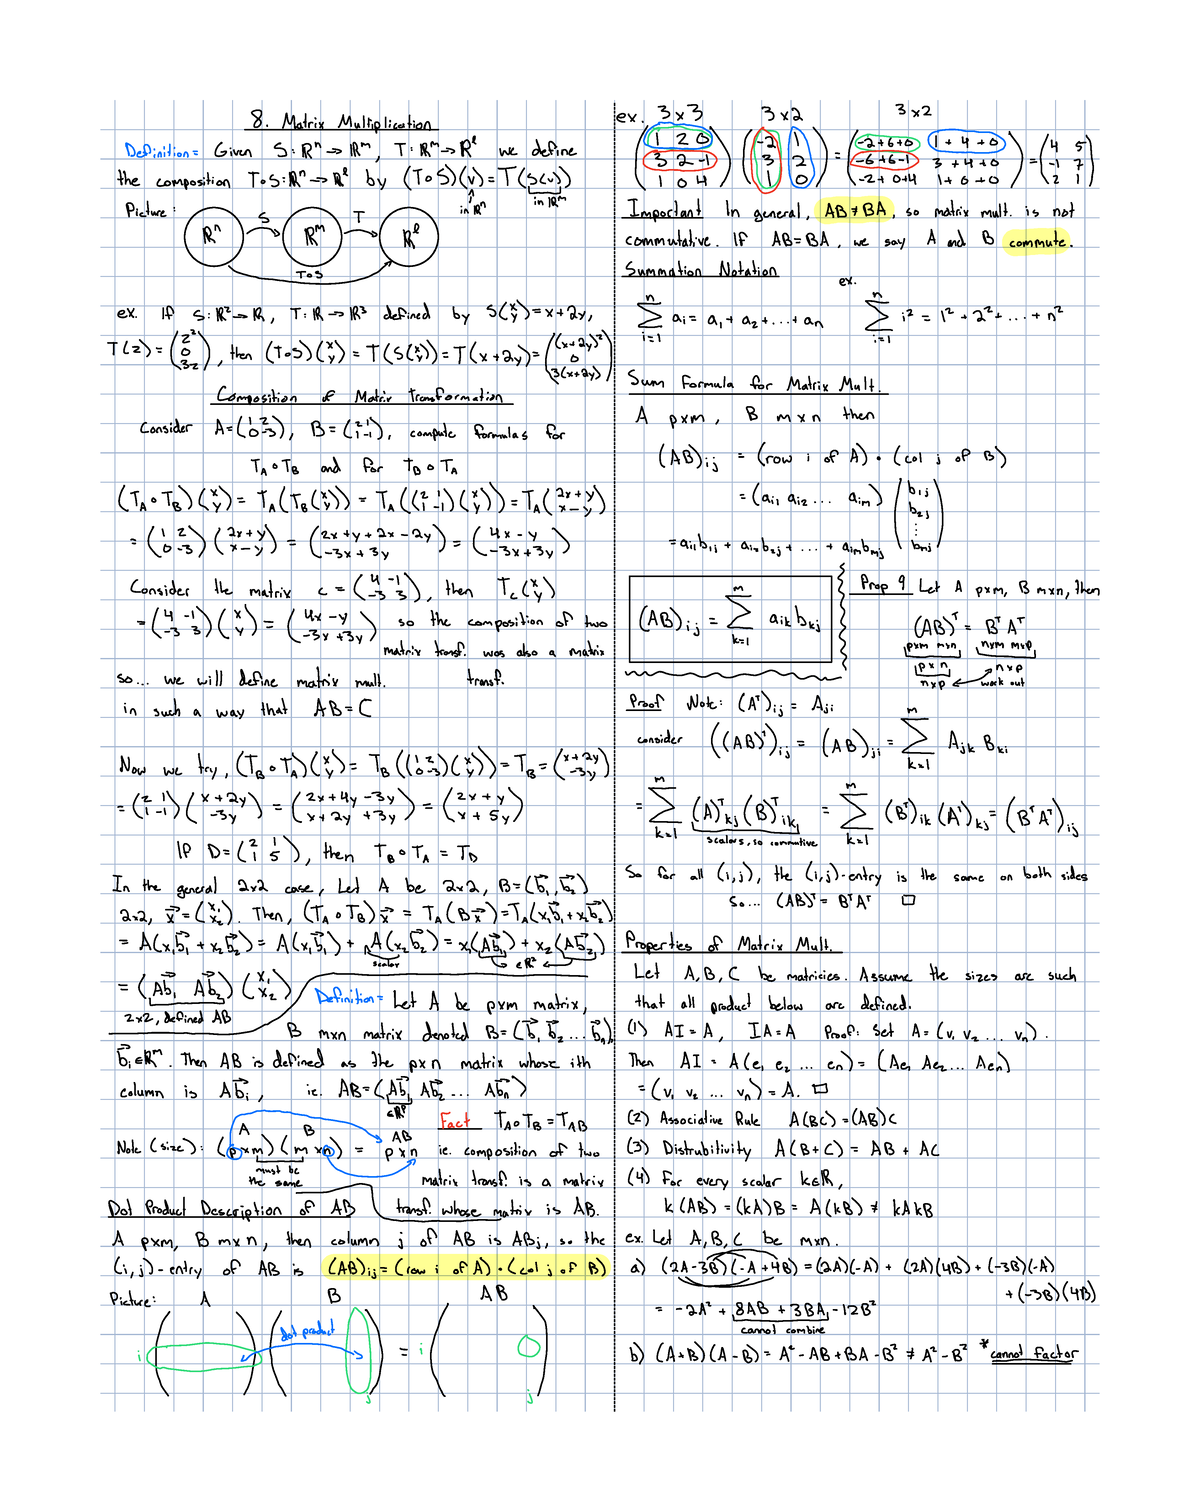 8. Matrix Multiplication
Definition = Given S: ℝⁿ → ℝᵐ, T: ℝᵐ → ℝˡ we define
the composition T∘S: ℝⁿ → ℝˡ by (T∘S)(v) = T(S(v))
in ℝⁿ in ℝᵐ
Picture:
ℝⁿ S ℝᵐ T ℝˡ
T∘S
ex. If S: ℝ² → ℝ, T: ℝ → ℝ³ defined by S(x y) = x+2y,
T(z) = (z² 0 3z), then (T∘S)(x y) = T(S(x y)) = T(x+2y) = ((x+2y)² 0 3(x+2y))
Composition of Matrix Transformation
Consider A = (1 2 0 -3), B = (2 1 1 -1), compute formulas for
T_A ∘ T_B and for T_B ∘ T_A
(T_A ∘ T_B)(x y) = T_A(T_B(x y)) = T_A((2 1 1 -1)(x y)) = T_A(2x+y x-y)
= (1 2 0 -3)(2x+y x-y) = (2x+y+2x-2y -3x+3y) = (4x-y -3x+3y)
Consider the matrix c = (4 -1 -3 3), then T_c(x y)
= (4 -1 -3 3)(x y) = (4x-y -3x+3y) so the composition of two
matrix transf. was also a matrix
transf.
so... we will define matrix mult.
in such a way that AB = C
Now we try, (T_B ∘ T_A)(x y) = T_B((1 2 0 -3)(x y)) = T_B = (x+2y -3y)
= (2 1 1 -1)(x+2y -3y) = (2x+4y-3y x+2y+3y) = (2x+y x+5y)
If D = (2 1 1 5), then T_B ∘ T_A = T_D
In the general 2x2 case, Let A be 2x2, B = (b⃗₁, b⃗₂)
2x2, x⃗ = (x₁ x₂). Then, (T_A ∘ T_B)x⃗ = T_A(Bx⃗) = T_A(x₁b⃗₁ + x₂b⃗₂)
= A(x₁b⃗₁ + x₂b⃗₂) = A(x₁b⃗₁) + A(x₂b⃗₂) = x₁(Ab⃗₁) + x₂(Ab⃗₂)
scalar ∈ℝ²
= (Ab⃗₁ Ab⃗₂)(x₁ x₂)
2x2, defined AB
Definition = Let A be pxm matrix,
B mxn matrix denoted B = (b⃗₁ b⃗₂ ... b⃗n)
b⃗ᵢ ∈ ℝᵐ. Then AB is defined as the pxn matrix whose ith
column is Ab⃗ᵢ, ie. AB = (Ab⃗₁ Ab⃗₂ ... Ab⃗n)
∈ℝᵖ
Fact T_A ∘ T_B = T_AB
A B AB
Note (size): (pxm)(mxn) = pxn
must be
the same
ie. composition of two
matrix transf. is a matrix
transf. whose matrix is AB.
Dot Product Description of AB
A pxm, B mxn, then column j of AB is ABj, so the
(i,j)-entry of AB is (AB)ij = (row i of A)·(col j of B)
Picture: A B AB
i dot product j = i j
ex. 3x3 3x2 3x2
(1 2 0 3 2 -1 1 0 4)(-2 1 3 2 1 0) = (-2+6+0 1+4+0 -6+6-1 3+4+0 -2+0+4 1+0+0) = (4 5 -1 7 2 1)
Important In general, AB≠BA, so matrix mult. is not
commutative. If AB=BA, we say A and B commute.
Summation Notation
ex.
n Σ i=1 ai = a₁ + a₂ + ... + an n Σ i=1 i² = 1² + 2² + ... + n²
Sum Formula for Matrix Mult.
A pxm, B mxn then
(AB)ij = (row i of A) · (col j of B)
= (ai1 ai2 ... aim) (b1j b2j ⋮ bmj)
= ai1b1j + ai2b2j + ... + aimbmj
(AB)ij = m Σ k=1 aik bkj
Prop 9 Let A pxm, B mxn, then
(AB)ᵀ = BᵀAᵀ
pxm mxn nxm mxp
pxn nxp
nxp work out
Proof Note: (Aᵀ)ij = Aji
consider ((AB)ᵀ)ij = (AB)ji = m Σ k=1 Ajk Bki
= m Σ k=1 (A)ᵀkj (B)ᵀik = m Σ k=1 (Bᵀ)ik (Aᵀ)kj = (BᵀAᵀ)ij
scalars, so commutive
So for all (i,j), the (i,j)-entry is the same on both sides
So... (AB)ᵀ = BᵀAᵀ □
Properties of Matrix Mult.
Let A,B,C be matricies. Assume the sizes are such
that all product below are defined.
(1) AI = A, IA = A Proof: Set A = (v₁ v₂ ... vn).
Then AI = A(e₁ e₂ ... en) = (Ae₁ Ae₂ ... Aen)
= (v₁ v₂ ... vn) = A. □
(2) Associative Rule A(BC) = (AB)C
(3) Distrubitivity A(B+C) = AB + AC
(4) For every scalar k∈ℝ,
k(AB) = (kA)B = A(kB) ≠ kAkB
ex. Let A,B,C be mxn.
a) (2A-3B)(-A+4B) = (2A)(-A) + (2A)(4B) + (-3B)(-A)
+ (-3B)(4B)
= -2A² + 8AB + 3BA - 12B²
cannot combine
b) (A+B)(A-B) = A² - AB + BA - B² ≠ A² - B² * cannot factor